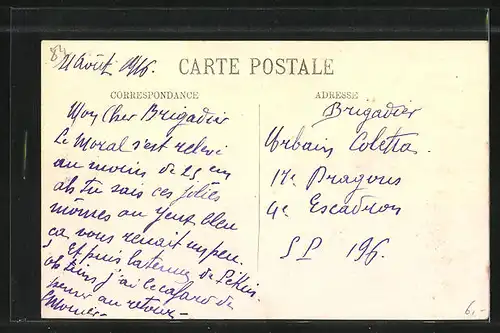 84
21 Août 1916.
CARTE POSTALE
CORRESPONDANCE
Mon Cher Brigadier
Le Moral s'est relevé
au moins de 25 cm
ah tu sais ces jolies
mômes au yeux bleu
ça vous remait un peu.
Et puis la tenue de
ah tiens j'ai le cafard de
penser au retour -
ADRESSE
Brigadier
Urbain Coletta.
17e Dragons
4e Escadron
S P 196.
6,-